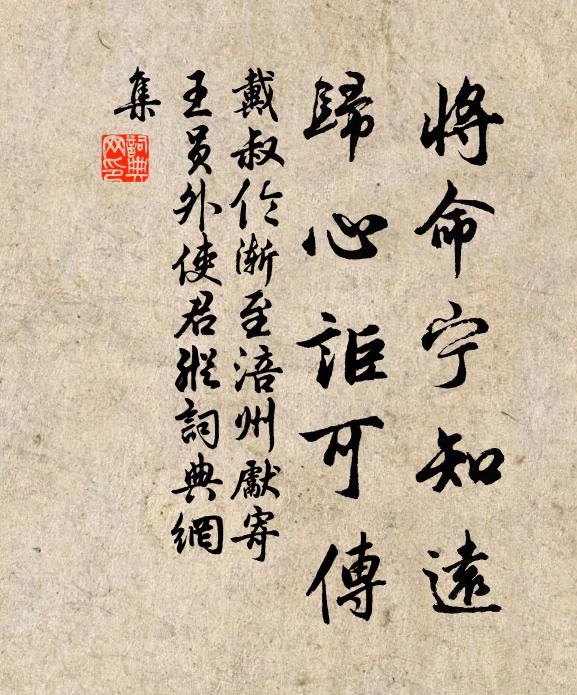 將命宁知遠
歸心詎可傳
戴叔伦渐至涪州獻寄
王員外使君縱詞典網
集
詞典
网印